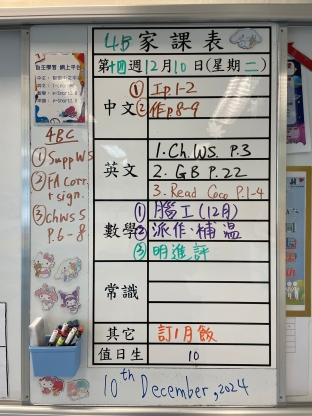 4B 家課表
第十四週12月10日(星期二)
中文 ① 工p.1-2
② 作p8-9
英文 1. Ch.WS. P.3
2. GB P.22
3. Read Coco P.1-4
數學 ① 腦工(12月)
② 派作·補溫
③ 明進評
常識
其它 訂1月飯
值日生 10
10th December, 2024
自主學習 網上平台
4BC
① Supp WS
② FA Corr.
+ sign.
③ Ch WS 5
P.6-8